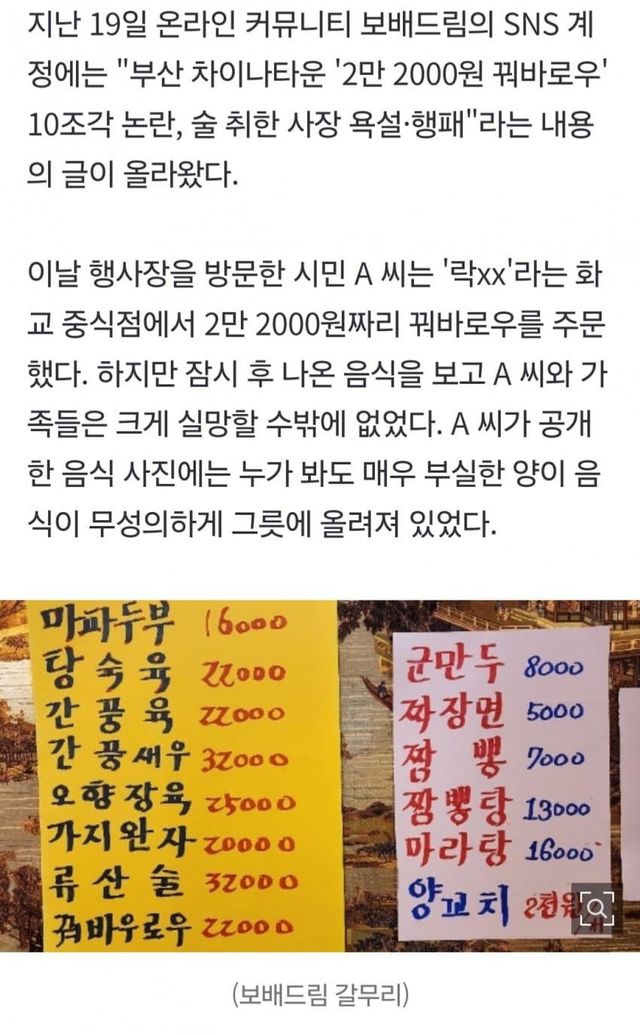 지난 19일 온라인 커뮤니티 보배드림의 SNS 계
정에는 "부산 차이나타운 '2만 2000원 꿔바로우'
10조각 논란, 술 취한 사장 욕설·행패"라는 내용
의 글이 올라왔다.
이날 행사장을 방문한 시민 A 씨는 '락xx'라는 화
교 중식점에서 2만 2000원짜리 꿔바로우를 주문
했다. 하지만 잠시 후 나온 음식을 보고 A 씨와 가
족들은 크게 실망할 수밖에 없었다. A 씨가 공개
한 음식 사진에는 누가 봐도 매우 부실한 양이 음
식이 무성의하게 그릇에 올려져 있었다.
마파두부 16000
탕숙육 22000
간풍육 22000
간풍새우 32000
오향장육 25000
가지완자 20000
류산술 32000
꿔바우로우 22000
군만두 8000
짜장면 5000
짬뽕 7000
짬뽕탕 13000
마라탕 16000
양꼬치 2천원
(보배드림 갈무리)